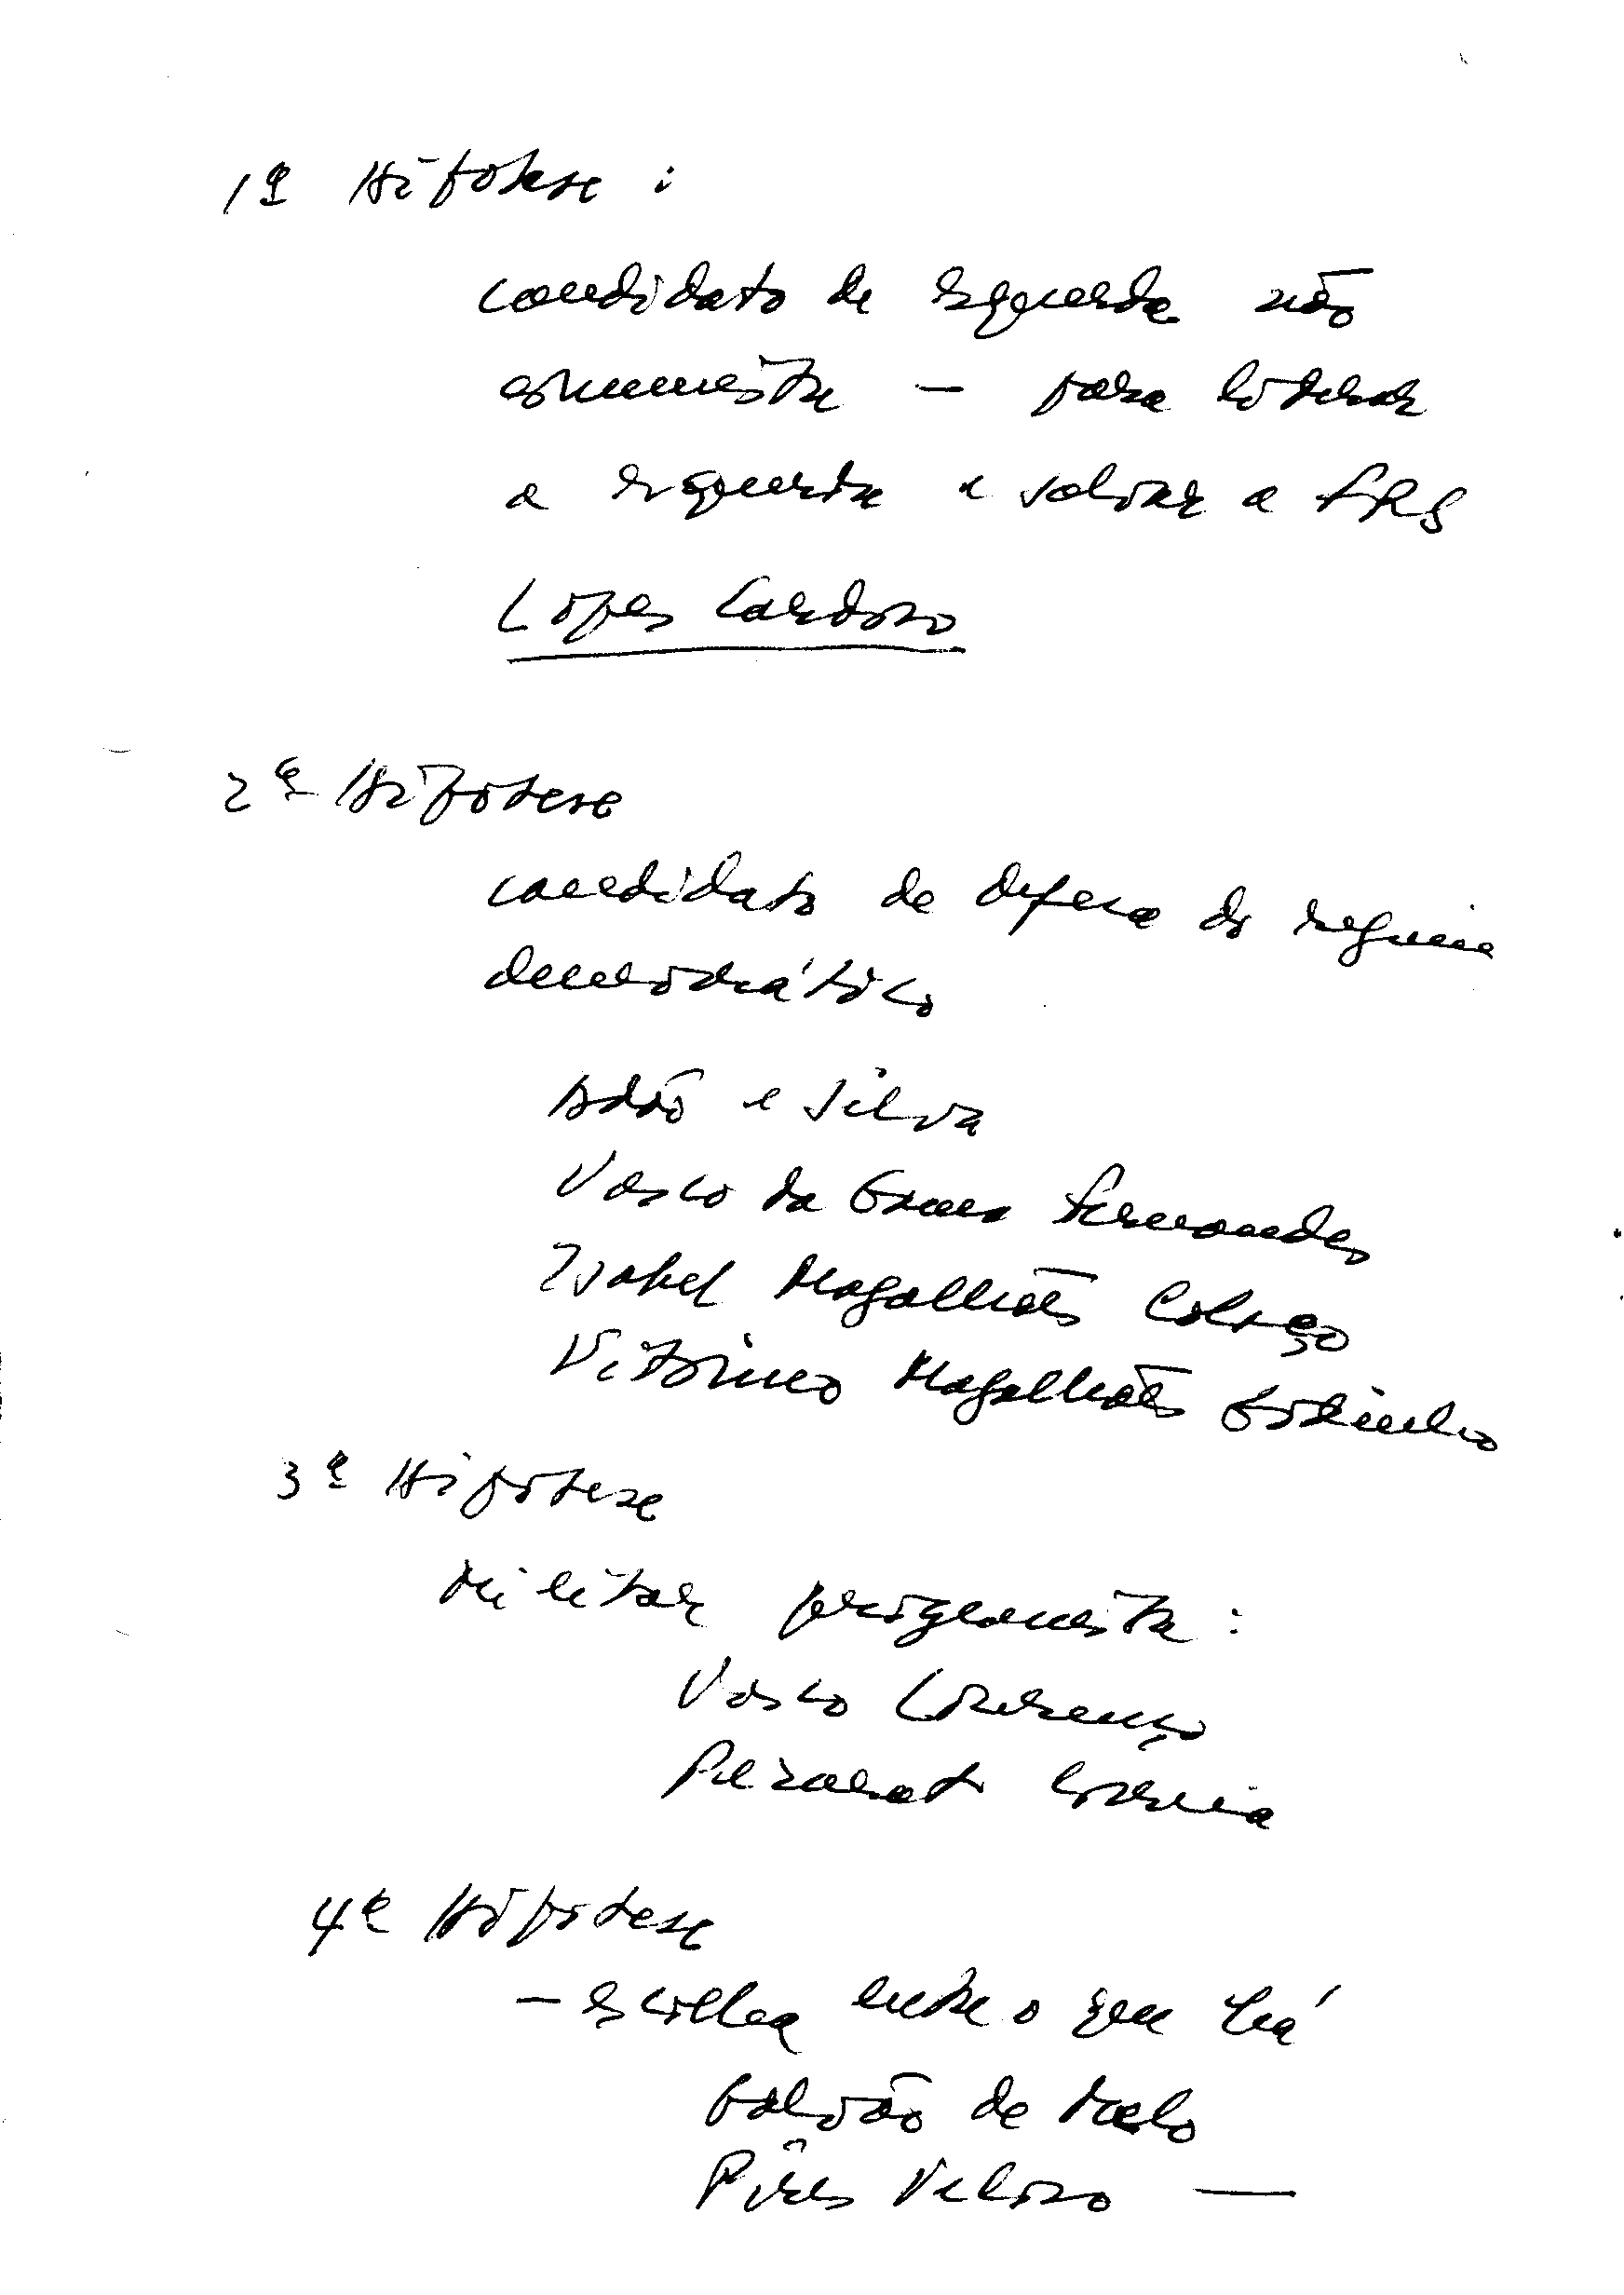 1ª Hipotese :
candidato de esquerda não
comunista — para liderar
a esquerda e salvar a FRS
Lopes Cardoso
2ª Hipotese
candidato de defesa do regime
democrático
Adão e Silva
Vasco da Gama Fernandes
Isabel Magalhães Colaço
Vitorino Magalhães Godinho
3ª Hipotese
Militar prigramista :
Vasco Lourenço
Pezarat Correia
4ª Hipotese
— escolha entre o que há
Galvão de Melo
Pires Veloso —